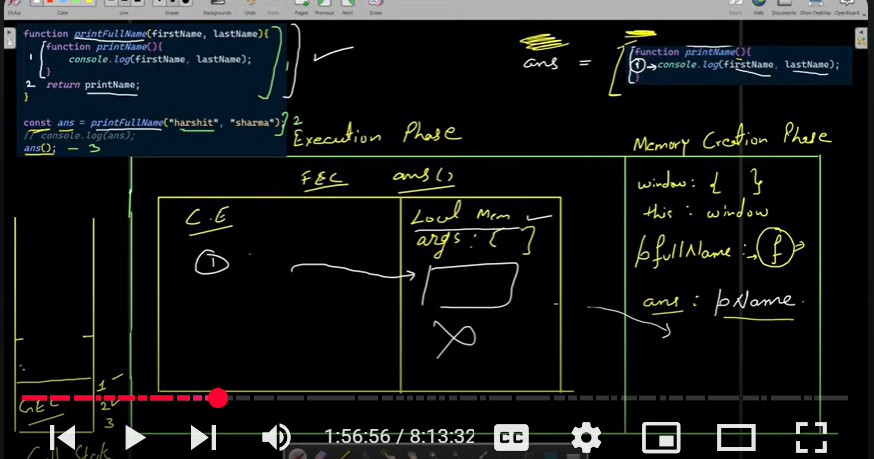 Stylus
Line
Eraser
Backgrounds
Undo
Redo
Pages
Previous
Next
Erase
Board
Web
Documents
Show Desktop
OpenBoard
function printFullName(firstName, lastName){
function printName(){
1 console.log(firstName, lastName);
}
2 return printName;
}
const ans = printFullName("harshit", "sharma"); 2
// console.log(ans);
ans(); - 3
1
ans =
function printName(){
1 console.log(firstName, lastName);
}
Execution Phase
Memory Creation Phase
FEC ans()
C.E
1
Local Mem
args : { }
window : { }
this : window
pfullName : f
ans : pName
GEC
1
2
3
Call Stack
1:56:56 / 8:13:32
CC